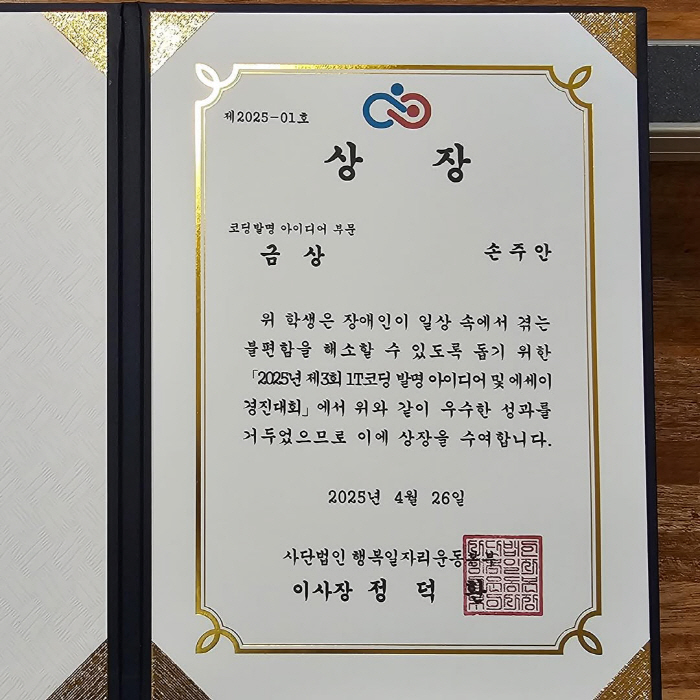 제2025-01호
상 장
코딩발명 아이디어 부문
금 상 손주안
위 학생은 장애인이 일상 속에서 겪는
불편함을 해소할 수 있도록 돕기 위한
「2025년 제3회 IT코딩 발명 아이디어 및 에세이
경진대회」에서 위와 같이 우수한 성과를
거두었으므로 이에 상장을 수여합니다.
2025년 4월 26일
사단법인 행복일자리운동본부
이사장 정 덕 환